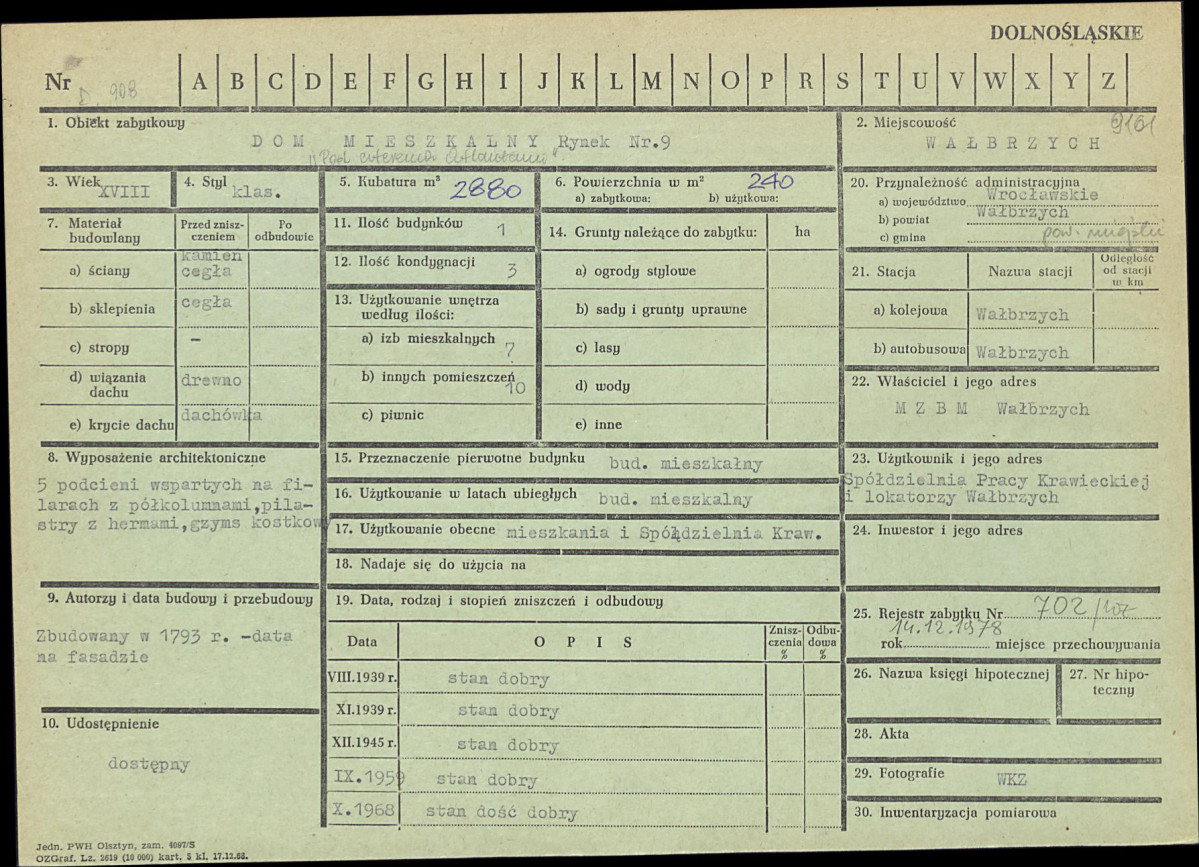 DOLNOŚLĄSKIE
Nr D. 908 A B C D E F G H I J K L M N O P R S T U V W X Y Z
1. Obiekt zabytkowy
DOM MIESZKALNY Rynek Nr.9
"Pod czterema Atlantami"
2. Miejscowość 9161
WAŁBRZYCH
3. Wiek XVIII
4. Styl klas.
5. Kubatura m³ 2880
6. Powierzchnia w m² 240
a) zabytkowa: b) użytkowa:
20. Przynależność administracyjna
a) województwo Wrocławskie
b) powiat Wałbrzych
c) gmina pow. miejski
7. Materiał budowlany
Przed zniszczeniem
Po odbudowie
a) ściany kamień cegła
b) sklepienia cegła
c) stropy –
d) wiązania dachu drewno
e) krycie dachu dachówka
11. Ilość budynków 1
12. Ilość kondygnacji 3
13. Użytkowanie wnętrza
według ilości:
a) izb mieszkalnych 7
b) innych pomieszczeń 10
c) piwnic
14. Grunty należące do zabytku: ha
a) ogrody stylowe
b) sady i grunty uprawne
c) lasy
d) wody
e) inne
21. Stacja Nazwa stacji Odległość od stacji w km
a) kolejowa Wałbrzych
b) autobusowa Wałbrzych
22. Właściciel i jego adres
MZBM Wałbrzych
8. Wyposażenie architektoniczne
5 podcieni wspartych na fi-
larach z półkolumnami,pila-
stry z hermami,gzyms kostkow
15. Przeznaczenie pierwotne budynku bud. mieszkalny
16. Użytkowanie w latach ubiegłych bud. mieszkalny
17. Użytkowanie obecne mieszkania i Spółdzielnia Kraw.
18. Nadaje się do użycia na
23. Użytkownik i jego adres
Spółdzielnia Pracy Krawieckiej
i lokatorzy Wałbrzych
24. Inwestor i jego adres
9. Autorzy i data budowy i przebudowy
Zbudowany w 1793 r. -data
na fasadzie
10. Udostępnienie
dostępny
19. Data, rodzaj i stopień zniszczeń i odbudowy
Data OPIS Zniszczenia % Odbudowa %
VIII.1939 r. stan dobry
XI.1939 r. stan dobry
XII.1945 r. stan dobry
IX.1959 stan dobry
X.1968 stan dość dobry
25. Rejestr zabytku Nr 702/
14.12.1978
rok miejsce przechowywania
26. Nazwa księgi hipotecznej
27. Nr hipo-
teczny
28. Akta
29. Fotografie WKZ
30. Inwentaryzacja pomiarowa
Jedn. PWH Olsztyn, zam. 4097/S
OZGraf. Lz. 2619 (10 000) kart. 5 kl. 17.12.68.